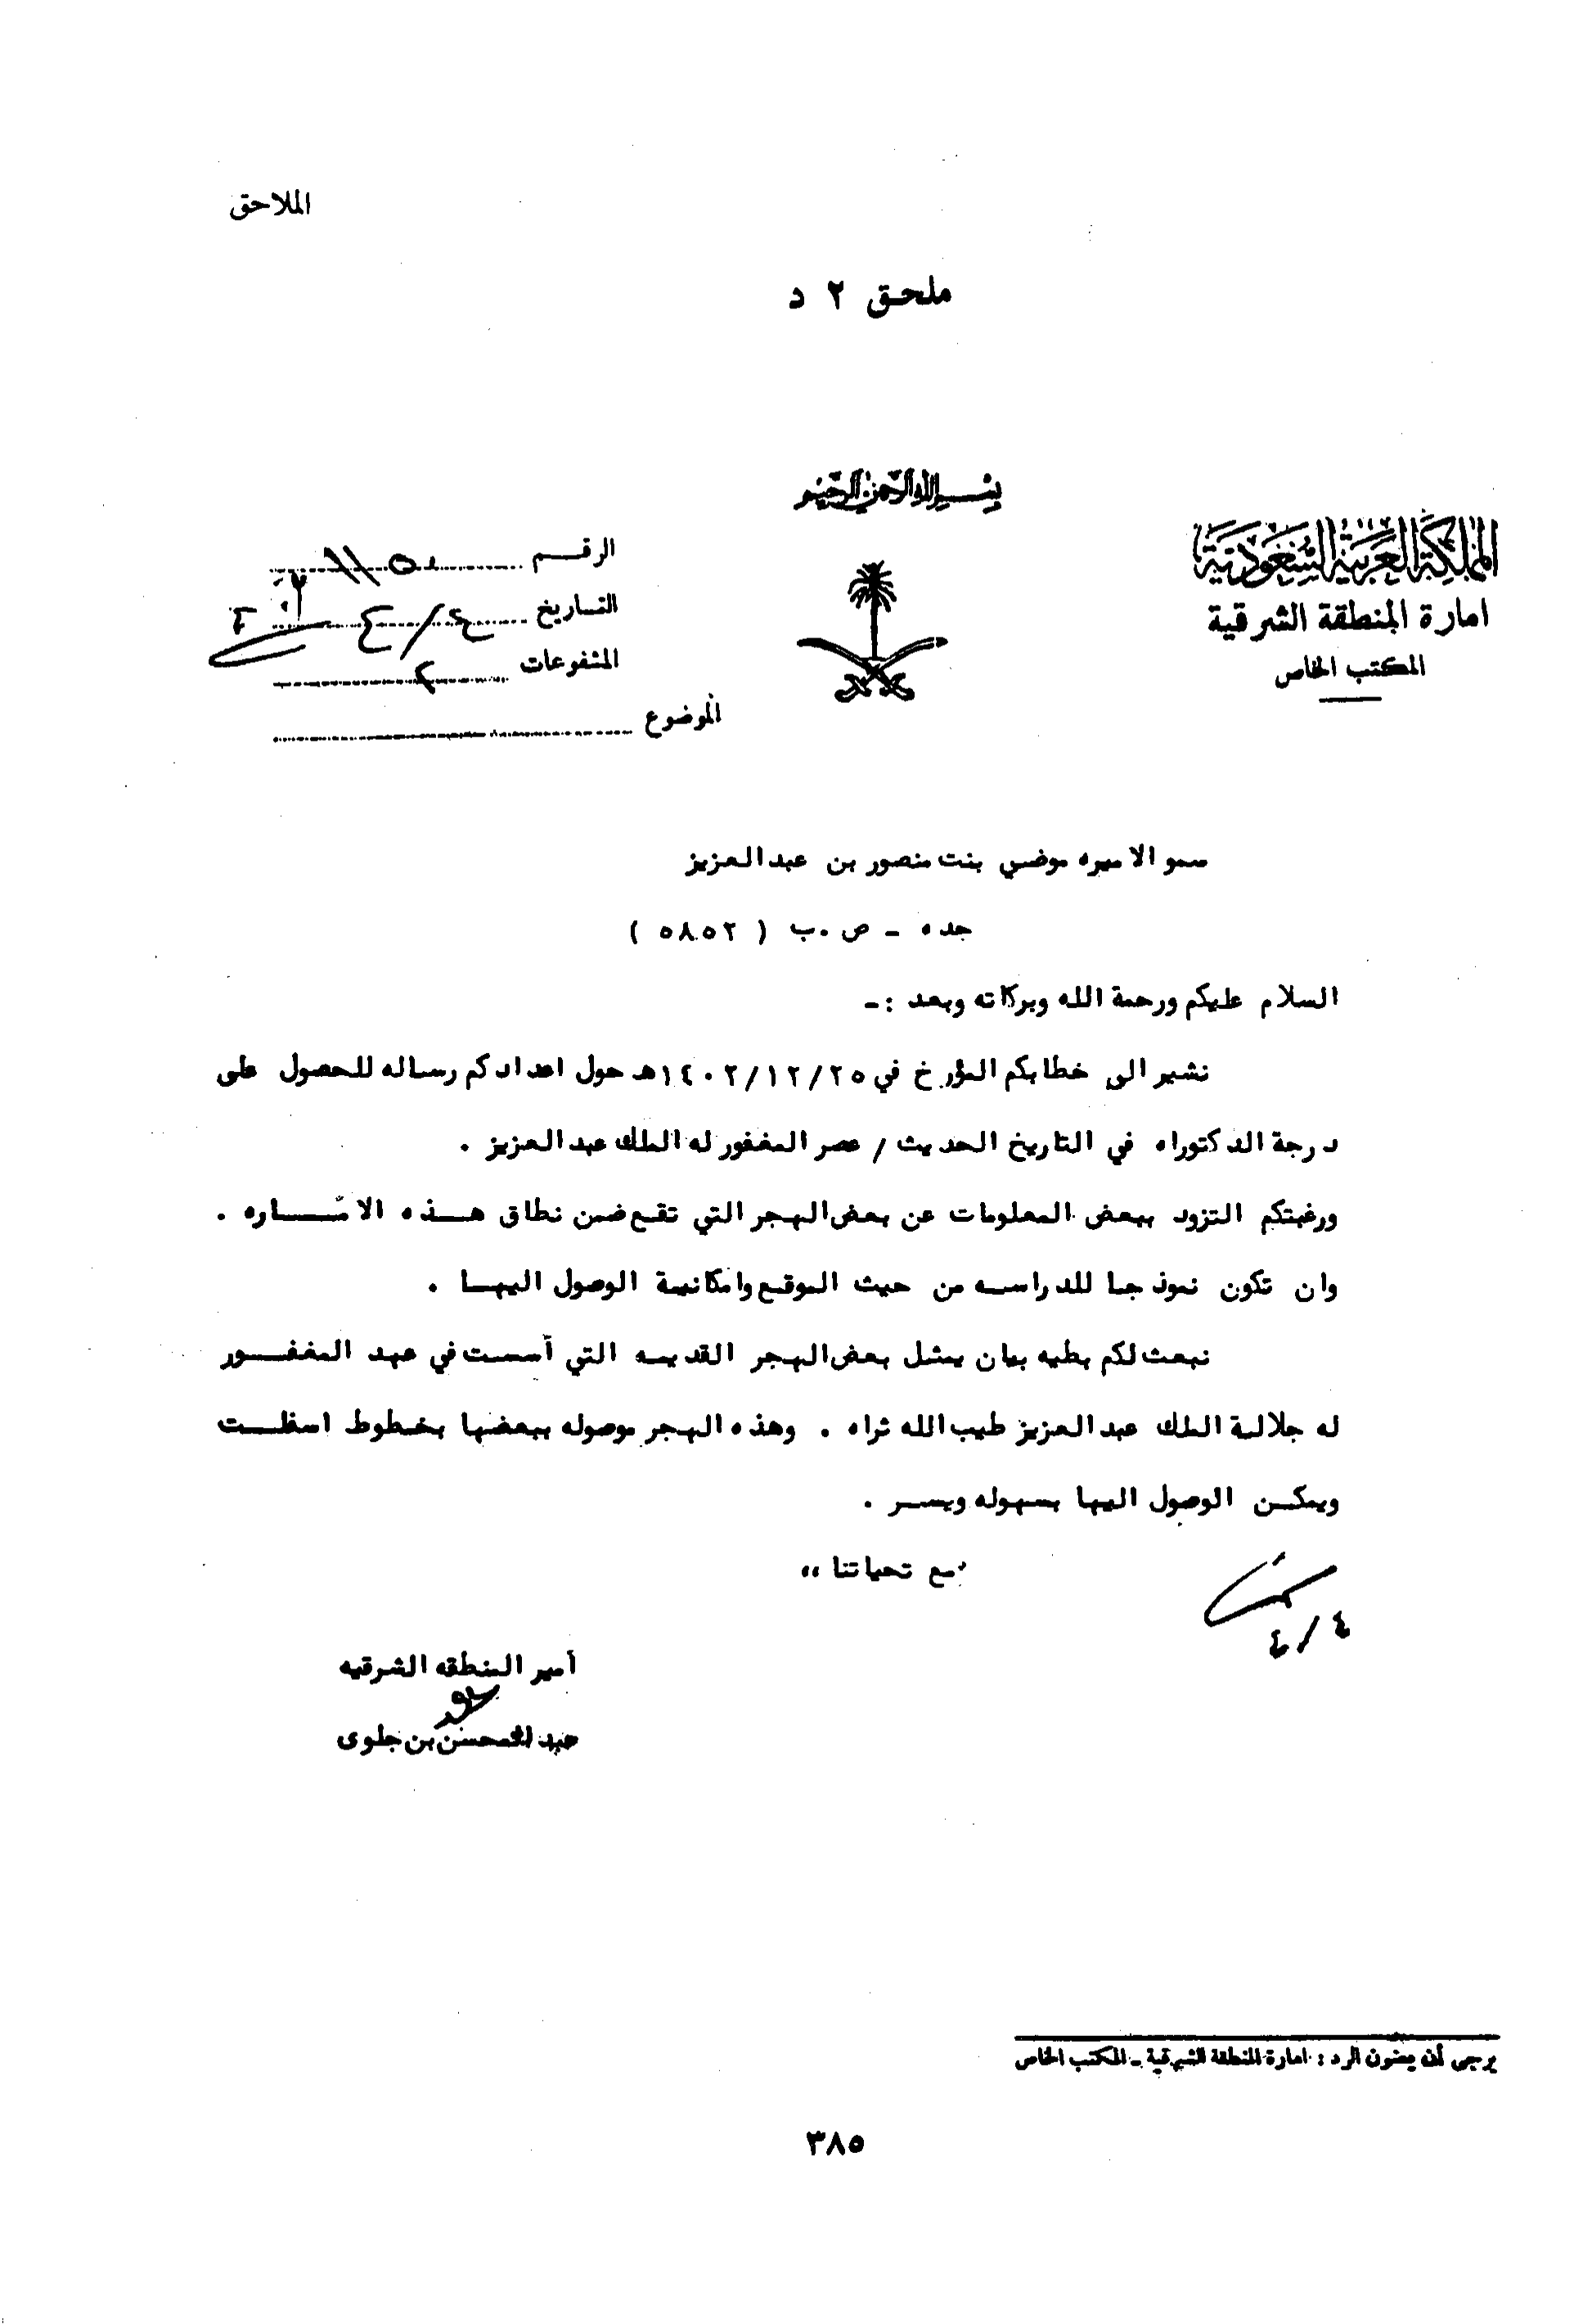 الملاحق
ملحق ٢ د
بسم الله الرحمن الرحيم
المملكة العربية السعودية
امارة المنطقة الشرقية
المكتب الخاص
الرقم
التاريخ ٤/٤
المشفوعات ٢
الموضوع
سمو الاميره موضي بنت منصور بن عبدالعزيز
جده - ص.ب ( ٥٨٥٢ )
السلام عليكم ورحمة الله وبركاته وبعد :-
نشير الى خطابكم المؤرخ في ١٤٠٢/١٢/٢٥هـ حول اعدادكم رساله للحصول على
درجة الدكتوراه في التاريخ الحديث / عصر المغفور له الملك عبدالعزيز .
ورغبتكم التزود ببعض المعلومات عن بعض الهجر التي تقع ضمن نطاق هذه الاماره .
وان تكون نموذجا للدراسه من حيث الموقع وامكانية الوصول اليها .
نبعث لكم بطيه بيان يمثل بعض الهجر القديمه التي أسست في عهد المغفور
له جلالة الملك عبدالعزيز طيب الله ثراه . وهذه الهجر موصوله ببعضها بخطوط اسفلت
ويمكن الوصول اليها بسهوله ويسر .
مع تحياتنا ،،
٤/٤
أمير المنطقه الشرقيه
عبدالمحسن بن جلوى
يرجى أن يعنون الرد : امارة المنطقة الشرقية - المكتب الخاص
٣٨٥